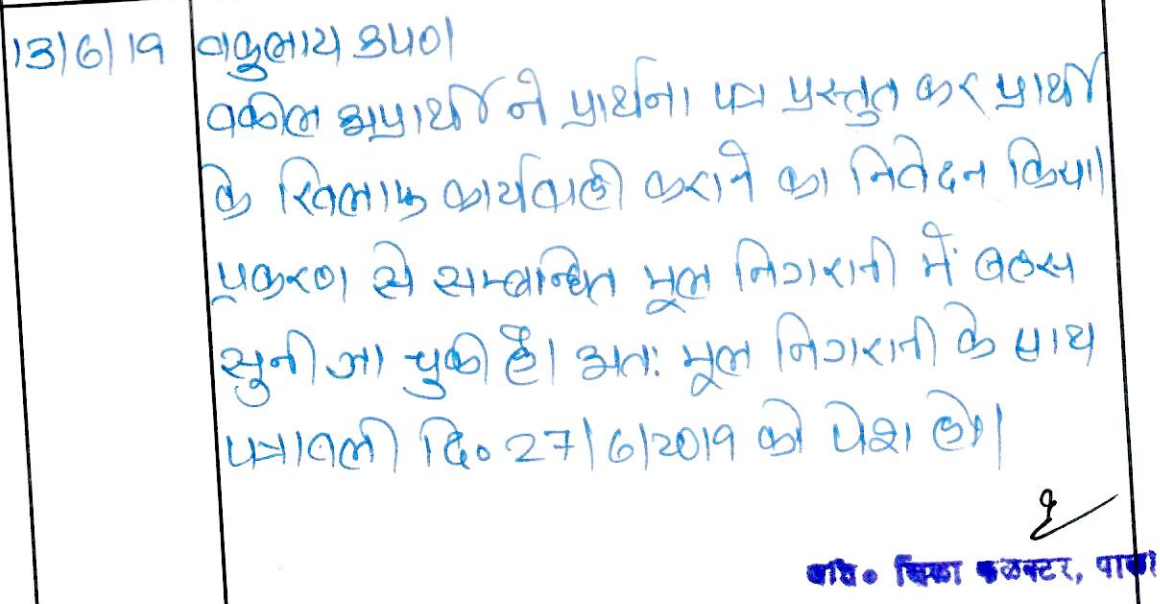 13/6/19 वकुलाय उप०।
वकील अप्रार्थी ने प्रार्थना पत्र प्रस्तुत कर प्रार्थी
के खिलाफ कार्यवाही कराने का निवेदन किया।
प्रकरण से सम्बन्धित मूल निगरानी में बहस
सुनी जा चुकी है। अतः मूल निगरानी के साथ
पत्रावली दि० 27/6/2019 को पेश हो।
अति० जिला कलक्टर, पाली